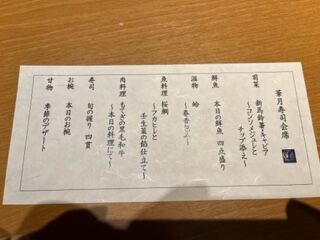 華月寿司会席
前菜 新馬鈴薯・キャビア
〜コンソメジュレと
チップ添え〜
鮮魚 本日の鮮魚 四点盛り
温物 蛤
〜春香
魚料理 桜鯛
〜フカヒレと
壬生菜の餡仕立て〜
肉料理 もてぎの黒毛和牛
〜本日の料理にて〜
寿司 旬の握り 四貫
お椀 本日のお椀
甘物 季節のデザート